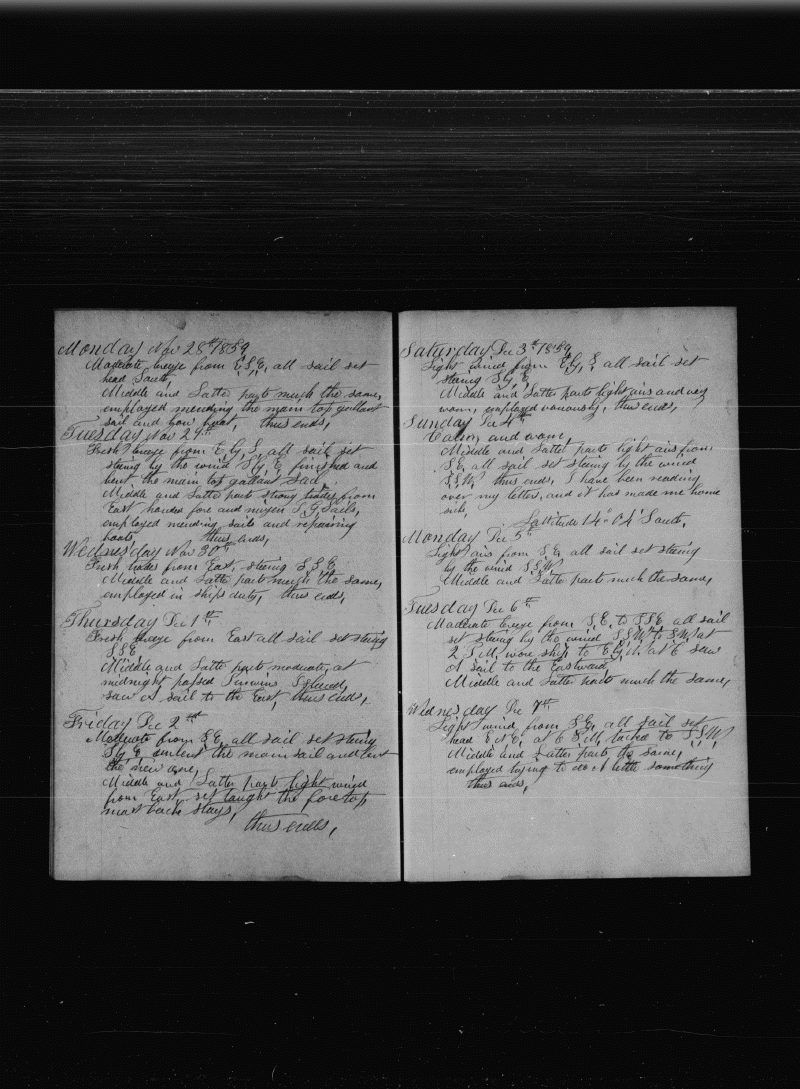 Monday Nov 28th 1859
Moderate breeze from E,S,E, all sail set
head South,
Middle and Latter parts much the same,
employed mending the main top gallant
sail and bow boat, thus ends,
Tuesday Nov 29th
Fresh breeze from E, by, S, all sail set
steering by the wind S, by, E, finished and
bent the main top gallant sail,
Middle and Latter parts strong trades from
East, handed fore and mizen T, G, Sails,
employed mending sails and repairing
boats, thus ends,
Wednesday Nov 30th
Fresh trades from East, steering S,S,E,
Middle and Latter parts much the same,
employed in ships duty, thus ends,
Thursday Dec 1st
Fresh breeze from East all sail set steering
S,S,E
Middle and Latter parts moderate, at
midnight passed Island,
saw A sail to the East, thus ends,
Friday Dec 2nd
Moderate from S,E, all sail set steering
S, by, E, unbent the mainsail and bent
the new one,
Middle and Latter parts light wind
from East, set taught the fore top
mast back stays,
thus ends,
Saturday Dec 3d 1859
Light wind from E, by, S, all sail set
steering S, by, E,
Middle and Latter parts light airs and very
warm, employed variously, thus ends,
Sunday Dec 4th
Calm and warm,
Middle and Latter parts light airs from
S,E, all sail set steering by the wind
S,S,W, thus ends, I have been reading
over my letters, and it has made me home
sick,
Lattitude 14° 04' South,
Monday Dec 5th
Light airs from S,E, all sail set steering
by the wind S,S,W,
Middle and Latter parts much the same,
Tuesday Dec 6th
Moderate breeze from S,E, to S,S,E all sail
set steering by the wind S,S,W, to S,W, at
2, P, M, wore ship to E, by, N, at 6 saw
A sail to the Eastward,
Middle and Latter parts much the same,
Wednesday Dec 7th
Light wind from S,E, all sail set
head E,N,E, at 6 P,M, tacked to S,S,W,
Middle and Latter parts the same,
employed trying to do A little something
thus ends,